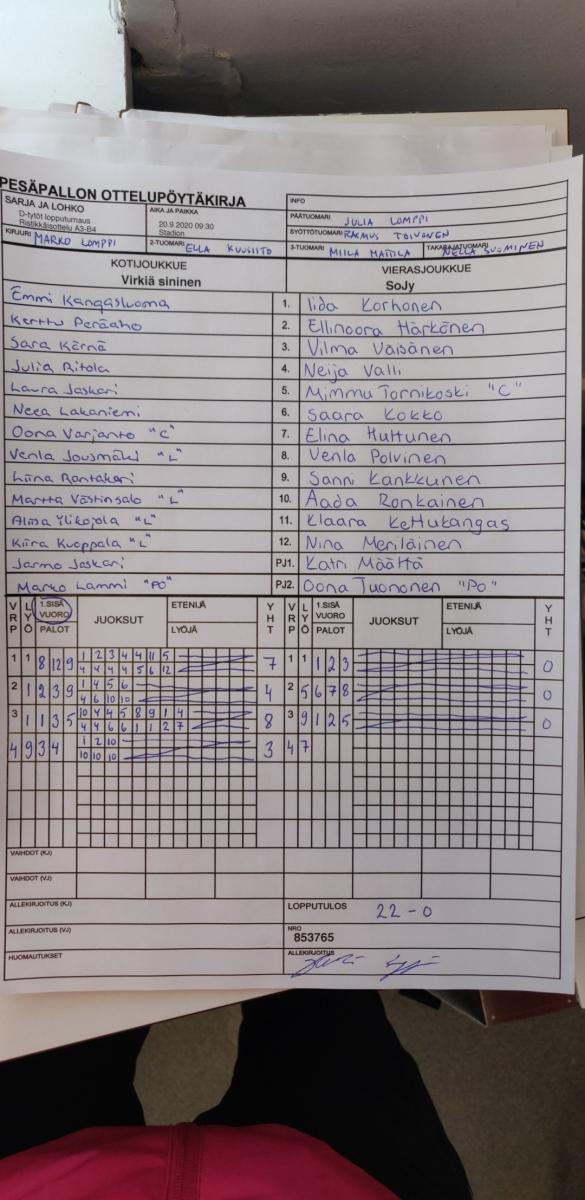 PESÄPALLON OTTELUPÖYTÄKIRJA
SARJA JA LOHKO
D-tytöt lopputurnaus
Ristikkäisottelu A3-B4
AIKA JA PAIKKA
20.9.2020 09:30
Stadion
INFO
PÄÄTUOMARI JULIA LOMPPI
KIRJURI MARKO LOMPPI 2-TUOMARI ELLA KUUSISTO
SYÖTTÖTUOMARI RASMUS TOIVONEN
3-TUOMARI MIILA MATTILA TAKARAJATUOMARI NELLA SUOMINEN
KOTIJOUKKUE VIERASJOUKKUE
Virkiä sininen SoJy
Emmi Kangasluoma 1. Iida Korhonen
Kerttu Peräaho 2. Ellinoora Härkönen
Sara Kärnä 3. Vilma Väisänen
Julia Ritola 4. Neija Valli
Laura Jaskari 5. Mimmu Tornikoski "C"
Neea Lakaniemi 6. Saara Kokko
Oona Varjanto "C" 7. Elina Huttunen
Venla Jousmäki "L" 8. Venla Polvinen
Liina Rantakari 9. Sanni Kankkunen
Martta Västinsalo "L" 10. Aada Ronkainen
Alma Ylikojola "L" 11. Klaara Kettukangas
Kiira Kuoppala "L" 12. Nina Meriläinen
Jarmo Jaskari PJ1. Katri Määttä
Marko Lammi "PO" PJ2. Oona Tuononen "PO"
VRP LYÖ 1.SISÄ VUORO PALOT JUOKSUT ETENIJÄ LYÖJÄ YHT VRP LYÖ 1.SISÄ VUORO PALOT JUOKSUT ETENIJÄ LYÖJÄ YHT
1 1 8 12 9 1 2 3 4 4 11 5 7 1 1 1 2 3 0
4 4 4 4 5 6 12
2 1 2 3 9 1 4 5 6 4 2 5 6 7 8 0
4 6 10 10
3 1 1 3 5 10 4 4 5 8 9 1 4 8 3 9 1 2 5 0
4 4 6 6 1 1 2 7
4 9 3 4 1 2 10 3 4 7
10 10 10
VAIHDOT (KJ)
VAIHDOT (VJ)
ALLEKIRJOITUS (KJ) LOPPUTULOS 22-0
ALLEKIRJOITUS (VJ) NRO
853765
HUOMAUTUKSET ALLEKIRJOITUS